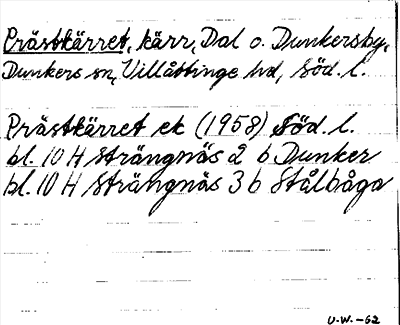 Prästkärret, kärr, Dal o. Dunkersby,
Dunkers sn, Villåttinge hd, Söd. l.
Prästkärret ek (1958) Söd. l.
bl. 10 H Strängnäs 2 b Dunker
bl. 10 H Strängnäs 3 b Stålbåga
U.W.-62